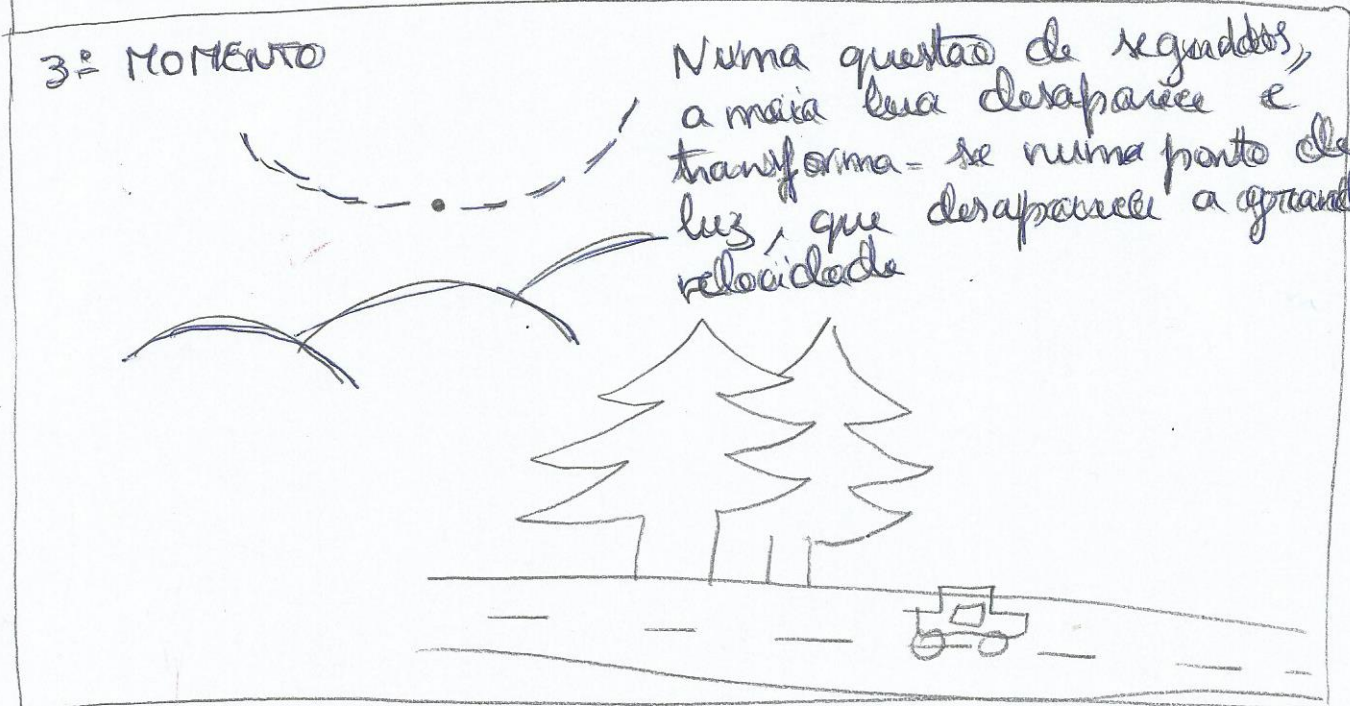 3º MOMENTO
Numa questão de segundos,
a meia lua desaparece e
transforma-se numa ponto de
luz, que desaparece a grand
velocidade